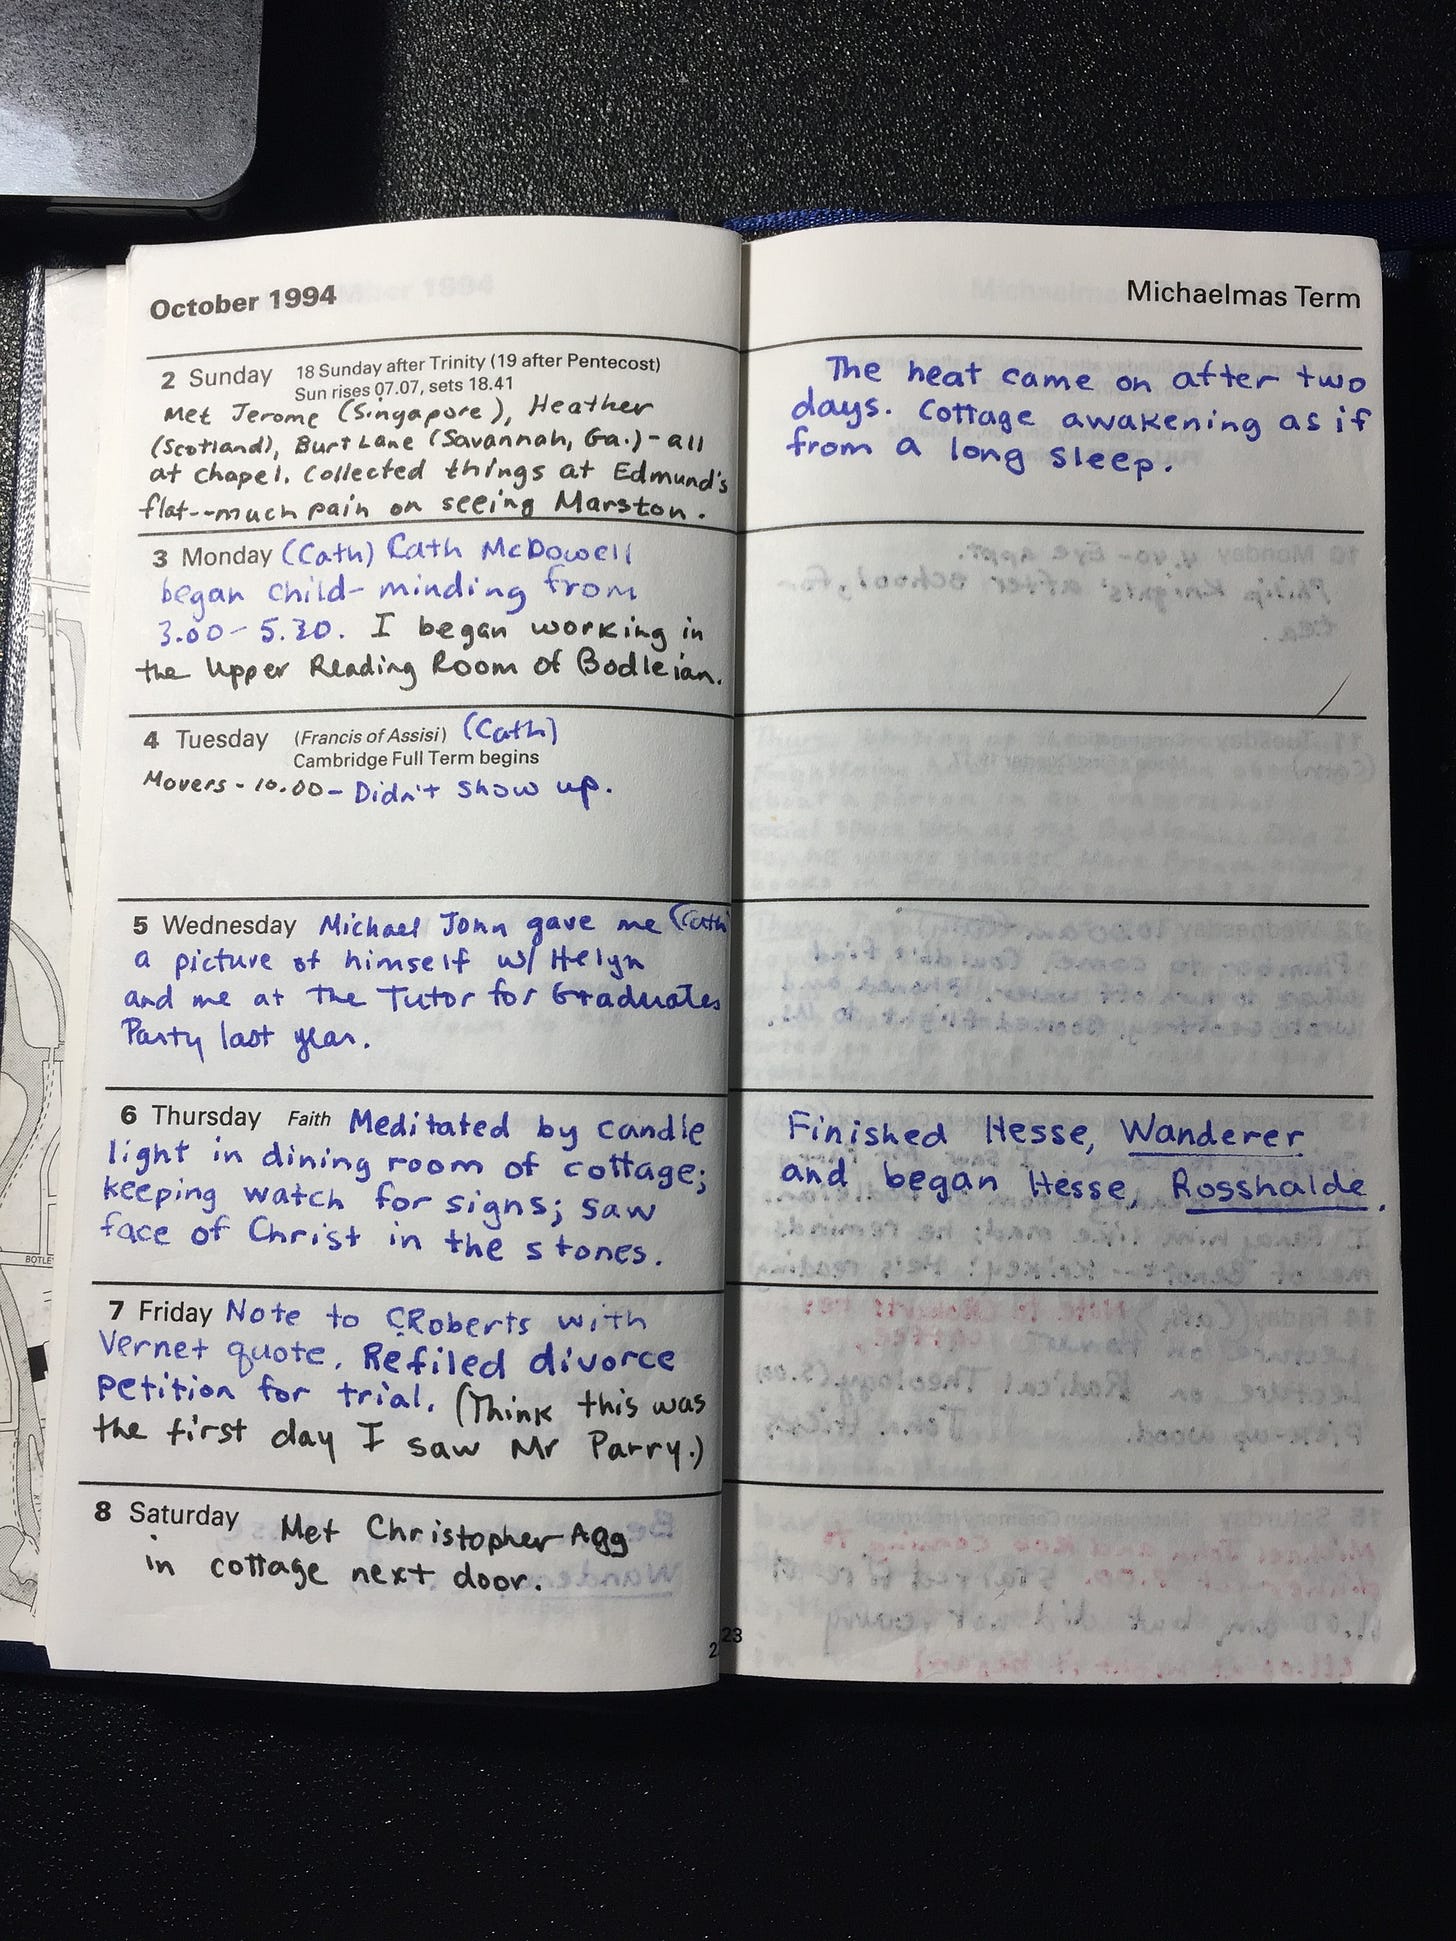 October 1994
2 Sunday 18 Sunday after Trinity (19 after Pentecost)
Sun rises 07.07, sets 18.41
Met Jerome (Singapore), Heather
(Scotland), Burt Lane (Savannah, Ga.) - all
at chapel. Collected things at Edmund's
flat--much pain on seeing Marston.
3 Monday (Cath) Cath McDowell
began child-minding from
3.00-5.30. I began working in
the Upper Reading Room of Bodleian.
4 Tuesday (Francis of Assisi) (Cath)
Cambridge Full Term begins
Movers - 10.00 - Didn't show up.
5 Wednesday Michael John gave me (Cath)
a picture of himself w/ Helyn
and me at the Tutor for Graduates
Party last year.
6 Thursday Faith Meditated by candle
light in dining room of cottage;
keeping watch for signs; saw
face of Christ in the stones.
7 Friday Note to CRoberts with
Vernet quote. Refiled divorce
petition for trial. (Think this was
the first day I saw Mr Parry.)
8 Saturday Met Christopher Agg
in cottage next door.
Michaelmas Term
The heat came on after two
days. Cottage awakening as if
from a long sleep.
Finished Hesse, Wanderer
and began Hesse, Rosshalde.
23
BOTLE